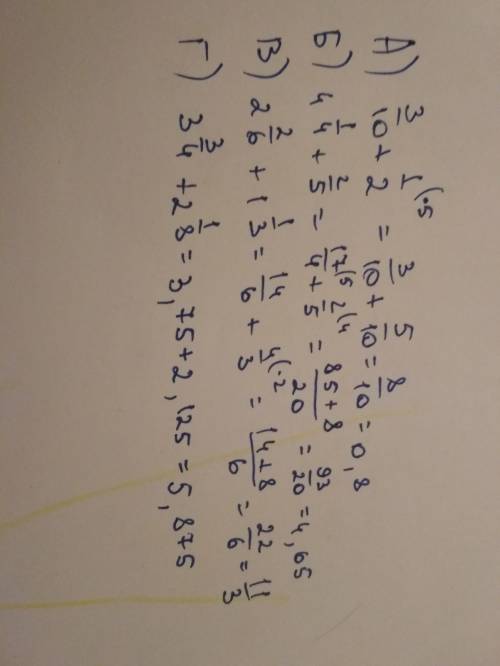 А) 3/10 + 1/2 (·5 = 3/10 + 5/10 = 8/10 = 0,8
Б) 4 1/4 + 2/5 = 17/4 (5 + 2/5 (4 = 85+8/20 = 93/20 = 4,65
В) 2 2/6 + 1 1/3 = 14/6 + 4/3 (·2 = 14+8/6 = 22/6 = 11/3
Г) 3 3/4 + 2 1/8 = 3,75 + 2,125 = 5,875